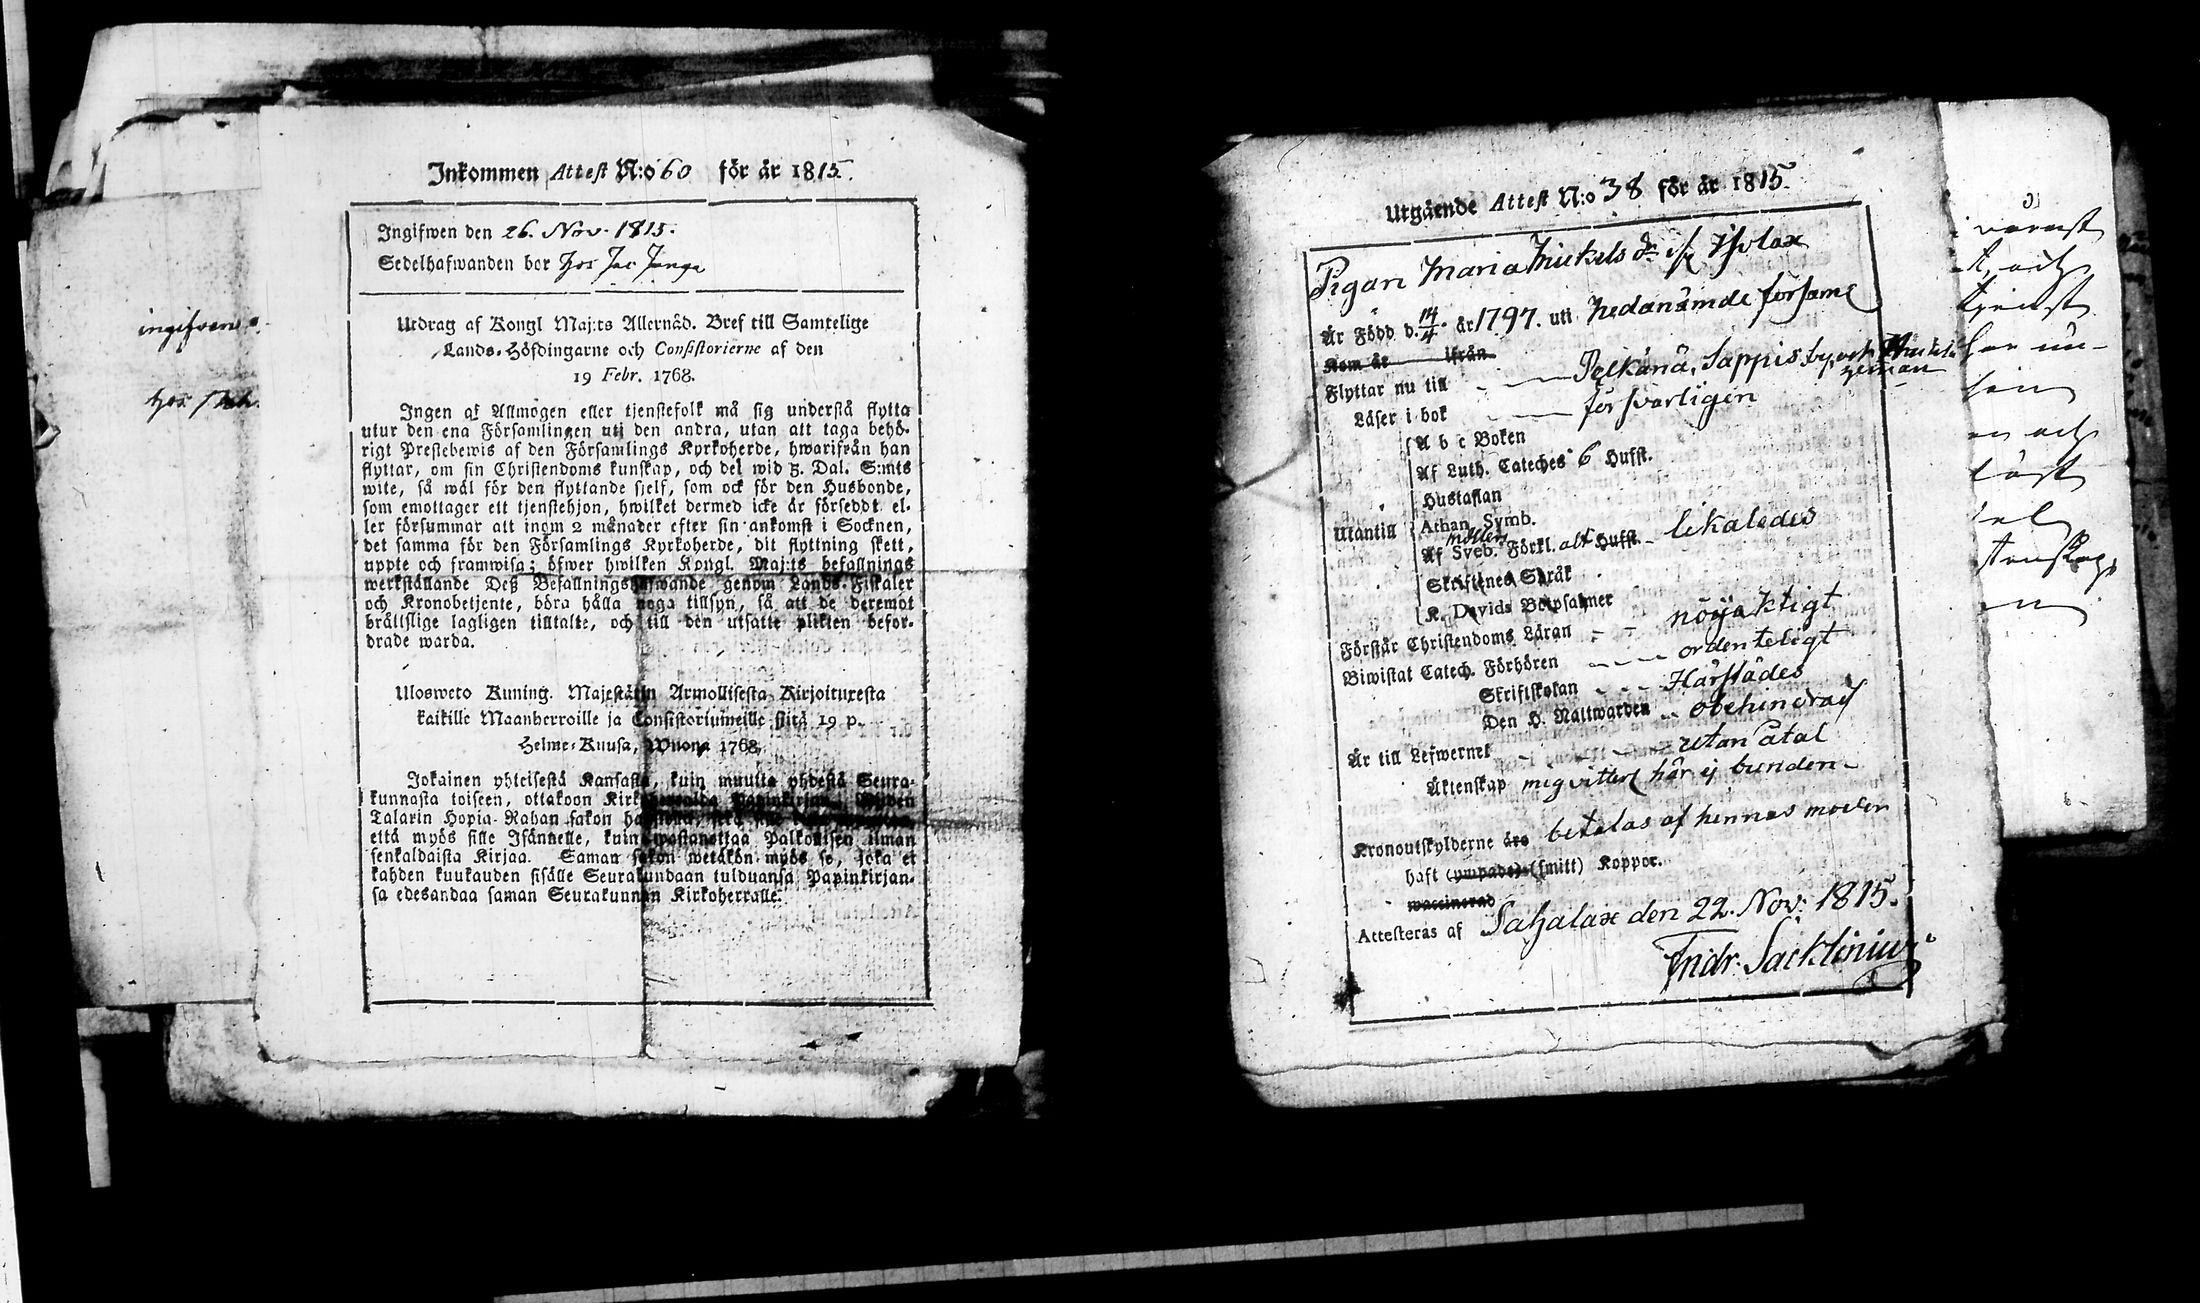 Inkommen Attest N:o 60 för år 1815.
Ingifwen den 26. Nov. 1815.
Sedelhafwanden bor hos Jac Janga
Utdrag af Kongl Maj:ts Allernåd. Bref till Samtelige
Lands-Höfdingarne och Consistorierne af den
19 Febr. 1768.
Ingen af Allmogen eller tjenstefolk må sig understå flytta
utur den ena Församlingen uti den andra, utan att taga behö-
rigt Prestebewis af den Församlings Kyrkoherde, hwarifrån han
flyttar, om sin Christendoms kunskap, och det wid 3. Dal. S:mts
wite, så wäl för den flyttande sjelf, som ock för den Husbonde,
som emottager ett tjenstehjon, hwilket dermed icke är försedt el-
ler försummar att inom 2 månader efter sin ankomst i Socknen,
det samma för den Församlings Kyrkoherde, dit flyttning skett,
uppte och framwisa; öfwer hwilken Kongl. Maj:ts befallnings
werkställande Deß Befallningshafwande genom Lands-Fiskaler
och Kronobetjente, böra hålla noga tillsyn, så att de deremot
brättslige lagligen tilltalte, och till den utsatte plikten befor-
drade warda.
Ulosweto Kuning. Majestätin Armollisesta Kirjoituxesta
kaikille Maanherroille ja Consistoriumeille siitä 19 p.
Helme-Kuusa, Wuona 1768.
Jokainen yhteisestä Kansasta, kuin muutta yhdestä Seura-
kunnasta toiseen, ottakoon Kirkoherralda Papinkirjan, Wijden
Talarin Hopia-Rahan sakon
että myös sille Isännelle, kuin wastanottaa Palkollisen ilman
senkaldaista Kirjaa. Saman sakon wetäkön myös se, joka ei
kahden kuukauden sisälle Seurakundaan tulduansa Papinkirjan-
sa edesandaa saman Seurakunnan Kirkoherralle.
ingifwen
hos
Utgående Attest N:o 38 för år 1815.
Pigan Maria Mickels dr
Är Född d. 14/4 år 1797. uti nedanämde församl
Kom åt ifrån
Flyttar nu till Pelkänä, Sappis by och
Läser i bok försvarligen
A b c Boken
Af Luth. Cateches 6 Hufst.
Hustaflan
Utantill Athan. Symb.
Af Sveb. Förkl. alt Hufst. likaledes
Skriftenes Språk
K. Davids Botpsalmer
Förstår Christendoms Läran nöyaktigt
Biwistat Catech. Förhören ordenteligt
Skriftskolan Härstädes
Den H. Nattwarden obehindrad
Är till Lefwernet utan åtal
Äktenskap mig vitterl här ej bunden
Kronoutskylderne äro betalas af hennes moder
haft (ympade) (smitt) Koppor.
waccinerad
Attesteras af Sahalax den 22. Nov: 1815.
Fridr. Sacklinius
och